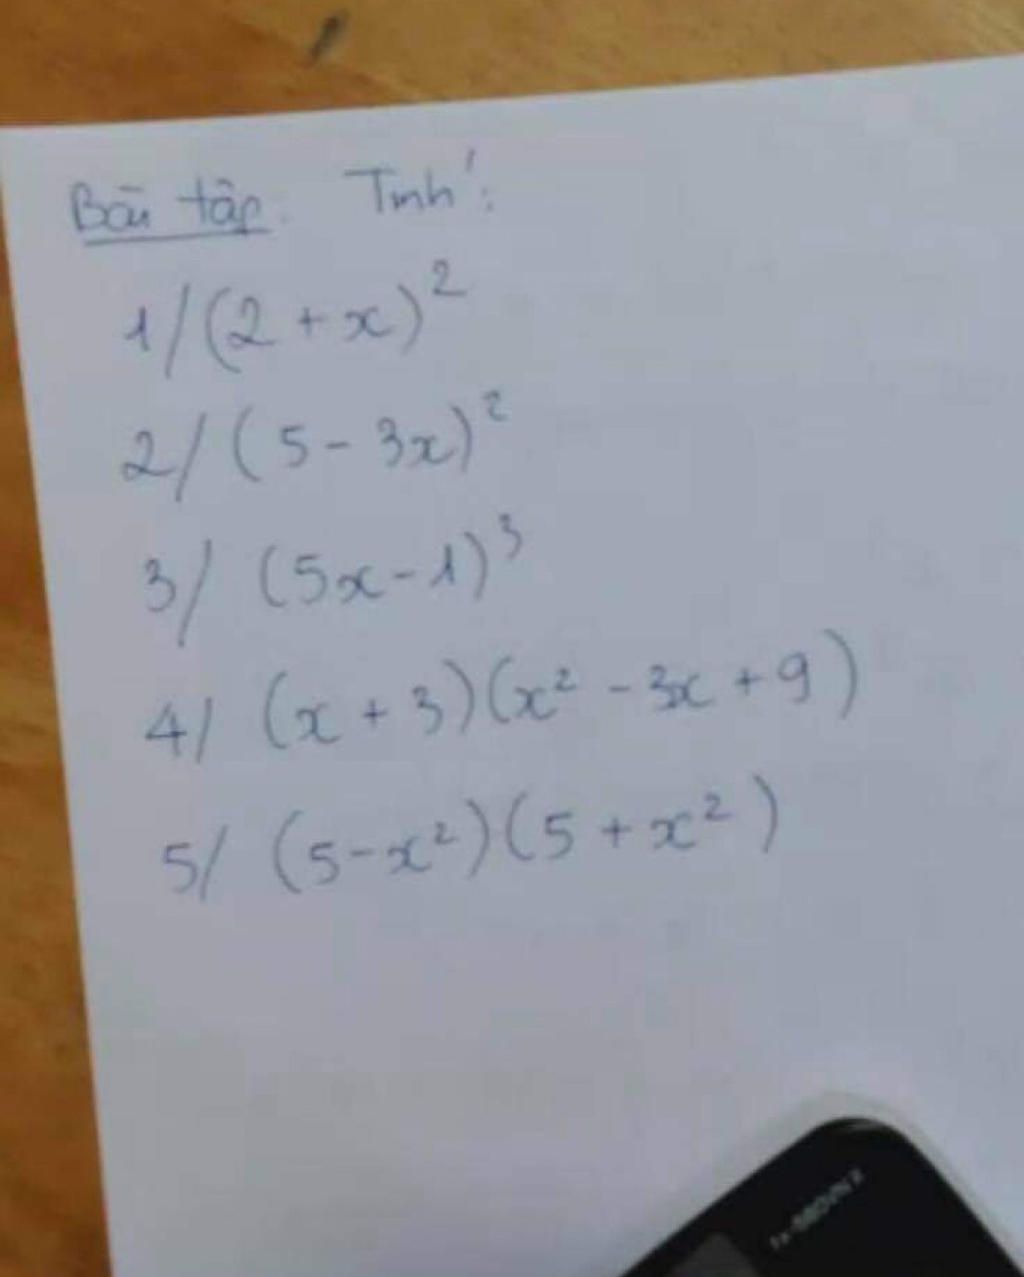 Bài tập: Tính:
1/ (2 + x)²
2/ (5 - 3x)²
3/ (5x - 1)³
4/ (x + 3)(x² - 3x + 9)
5/ (5 - x²)(5 + x²)
fx-580VN X